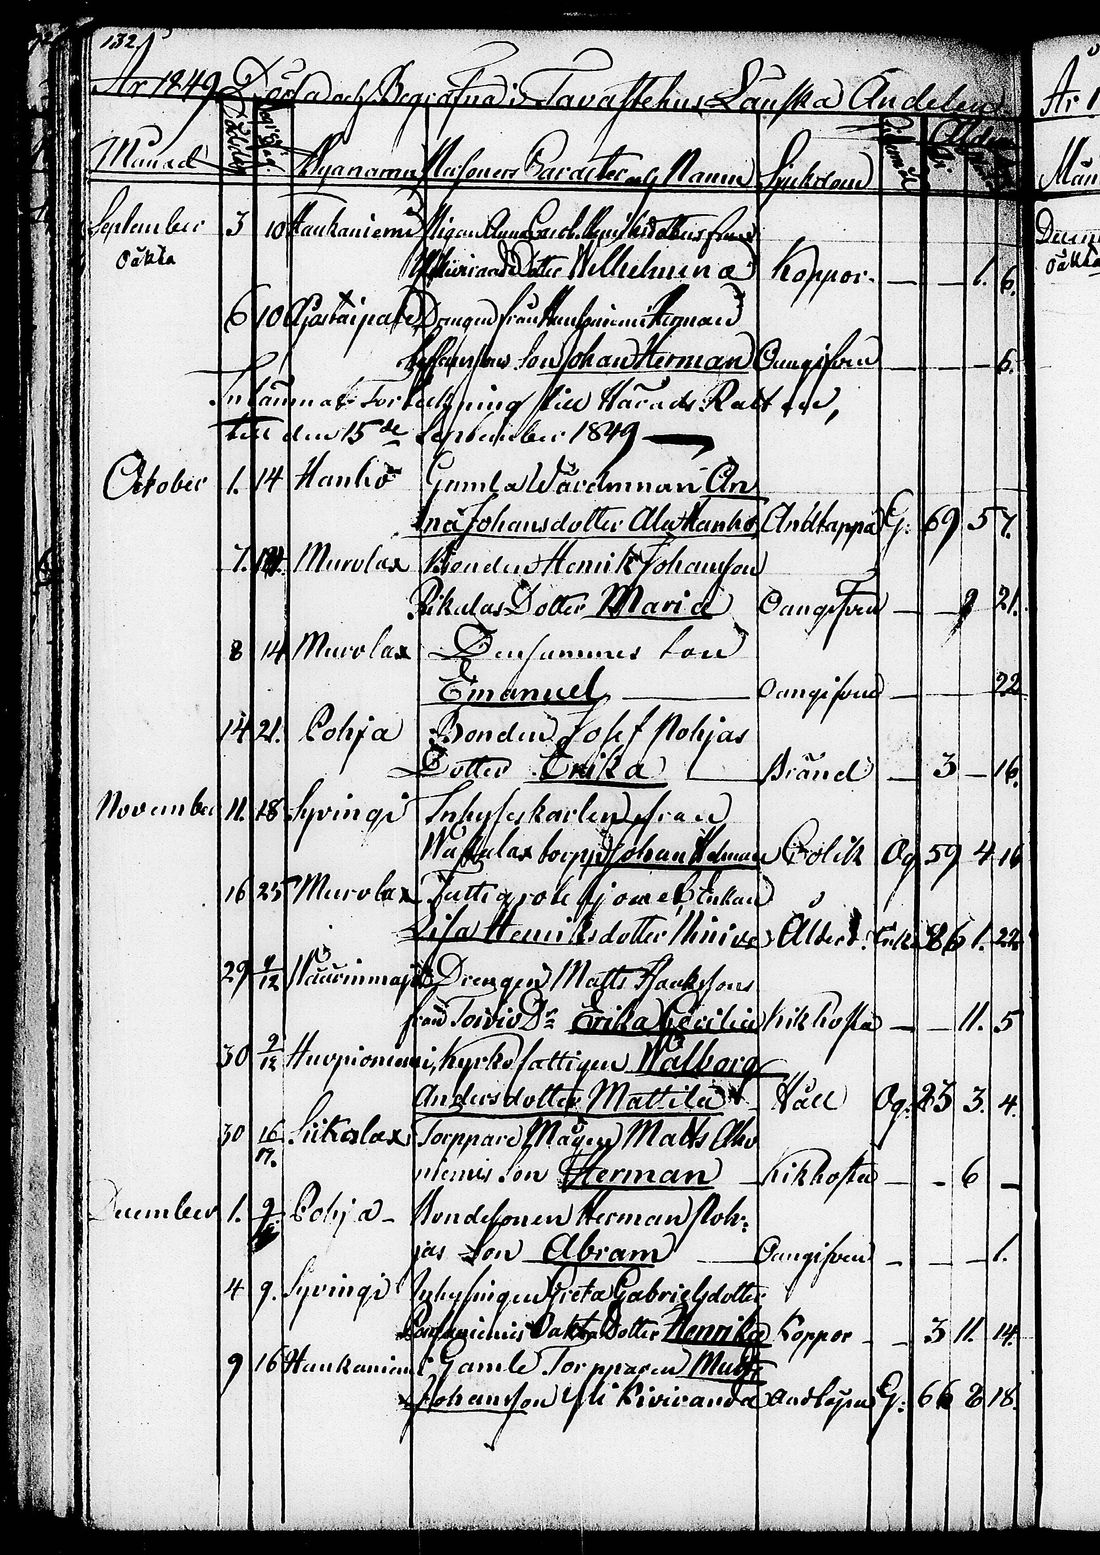 132
År 1849 Döda och Begrafna i Tavastehus Länska Andelen
Månad Byanamn Personers Caracter och Namn Sjukdom
September 3 10 Haukaniemi Pigan Anna
oäkta Dotter Wilhelmina Koppor — — 1. 6.
6 10 Drängen från Haukaniemi Herman
Son Johan Herman Oangifven — — — 6.
Inlämnat Förteckning till Härads Rätten,
till den 15de September 1849 —
October 1. 14 Hanhō Gamla Värdinnan An
na Johansdotter Ala Hanho Andtäppa G: 69 5 7.
7. 14. Murolax Bonden Henrik Johansson
Rikalas Dotter Maria Oangifven — — 9 21.
8 14 Murolax Densammes Son
Emanuel — Oangifven — 22
14 21. Pohja Bonden Josef Pohjas
Dotter Erika — Bränd — 3 — 16.
November 11. 18 Syringi Inhyseskarlen från
torp Johan Colik Og 59 4 16
16 25 Murolax Fattighjonet Enkan
Lisa Henriksdotter Ålderd. Enka 86 1. 22
29 9/12 Drengen Matts
från Toivio Dr Erika Cecilia Kikhosta — — 11. 5
30 9/12 Kyrkofattigen Walborg
Andersdotter Mattila Håll Og: 23 3. 4.
30 16/12. Torppare Mågen Matts Aho
niemis Son Herman — Kikhosta — — 6 —
December 1. 9 Pohja — Bondesonen Herman Poh-
jas Son Abram — Oangifven — — — 1.
4 9. Syringi Inhysingen Greta Gabrielsdotter
Oäkta Dotter Henrika Koppor — — 3 11. 14.
9 16 Haukaniemi Gamle Torpparen Matts
Johansson Yli Kiviranda Andtäppa G: 66 8 18.